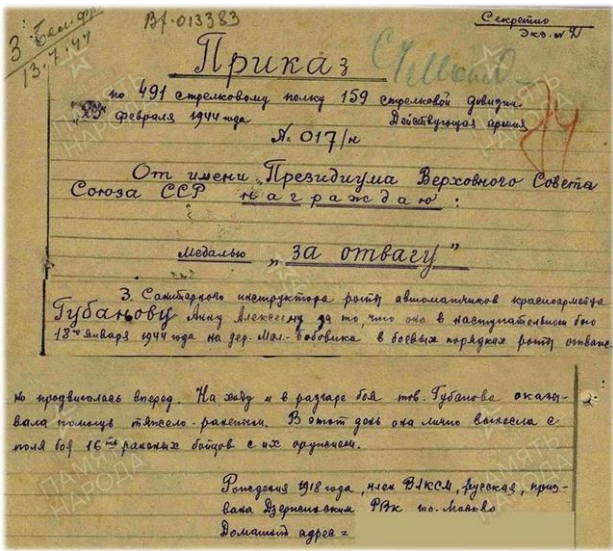 З. Бел. фр.
13.7.44
Вх-013383
Секретно
Экз. № 2
Приказ
по 491 стрелковому полку 159 стрелковой дивизии.
"23" февраля 1944 года Действующая армия
№ 017/н
От имени Президиума Верховного Совета
Союза ССР награждаю:
медалью "За отвагу"
3. Санитарного инструктора роты автоматчиков красноармейца
Губанову Анну Алексеевну за то, что она в наступательном бою
18го января 1944 года на дер. Мал.-Бобовика в боевых порядках роты отваж-
но продвигалась вперед. На ходу и в разгаре боя тов. Губанова оказы-
вала помощь тяжело-раненым. В этот день она лично вынесла с
поля боя 16ть раненых бойцов с их оружием.
Рождения 1918 года, член ВЛКСМ, русская, приз-
вана Дзержинским РВК гор. Москва
Домашний адрес =
ПАМЯТЬ
НАРОДА
ПАМЯТЬ
НАРОДА
ПАМЯТЬ
НАРОДА